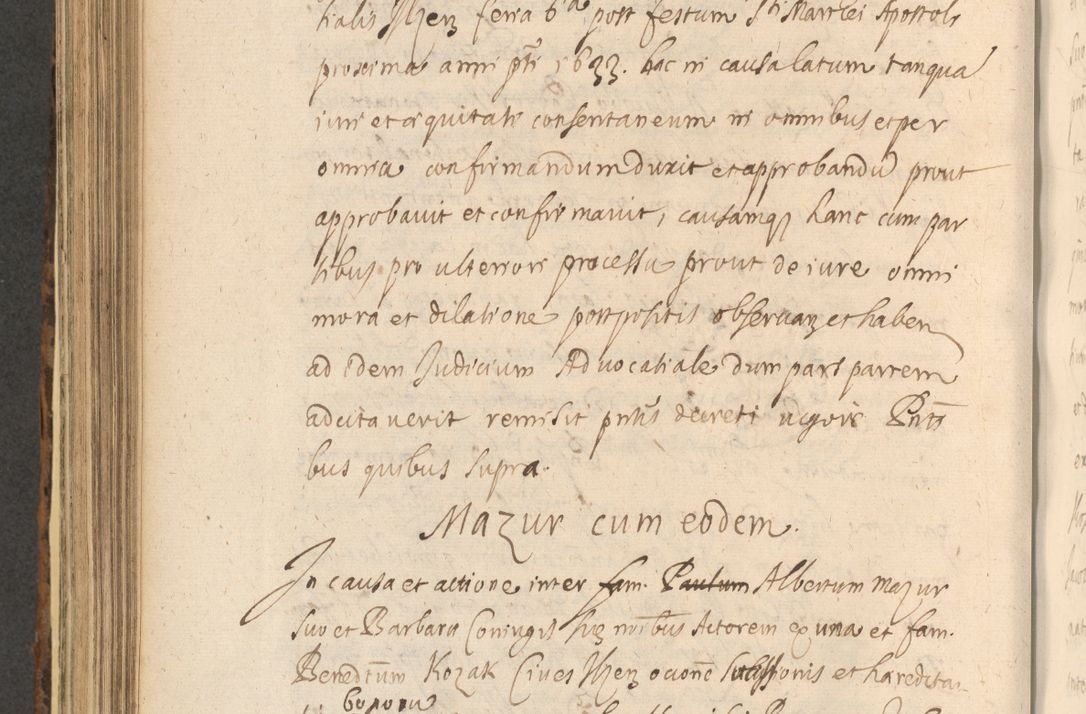 tialis Ilzen feria 6ta post festum Sti Matthei Apostoli
proxima anni pnti 1633. hac in causa latum tanqua
iuri et æquitati consentaneum in omnibus et per
omnia confirmandum duxit et approbandū prout
approbavit et confirmavit, causamq hanc cum par
tibus pro ulteriori processu prout de iure omni
mora et dilatione postpositis observan et haben
ad idem Iudicium Advocatiale dum pars partem
adcitaverit remisit pntis decreti vigore Pntt
bus quibus supra.
Mazur cum eodem.
In causa et actione inter fam. Paulum Albertum Mazur
suo et Barbara Coniugis suæ noībus Actorem ex una et fam.
Benedtum Kozak Cives Ilzen ocione successionis et hæredita
bonoru